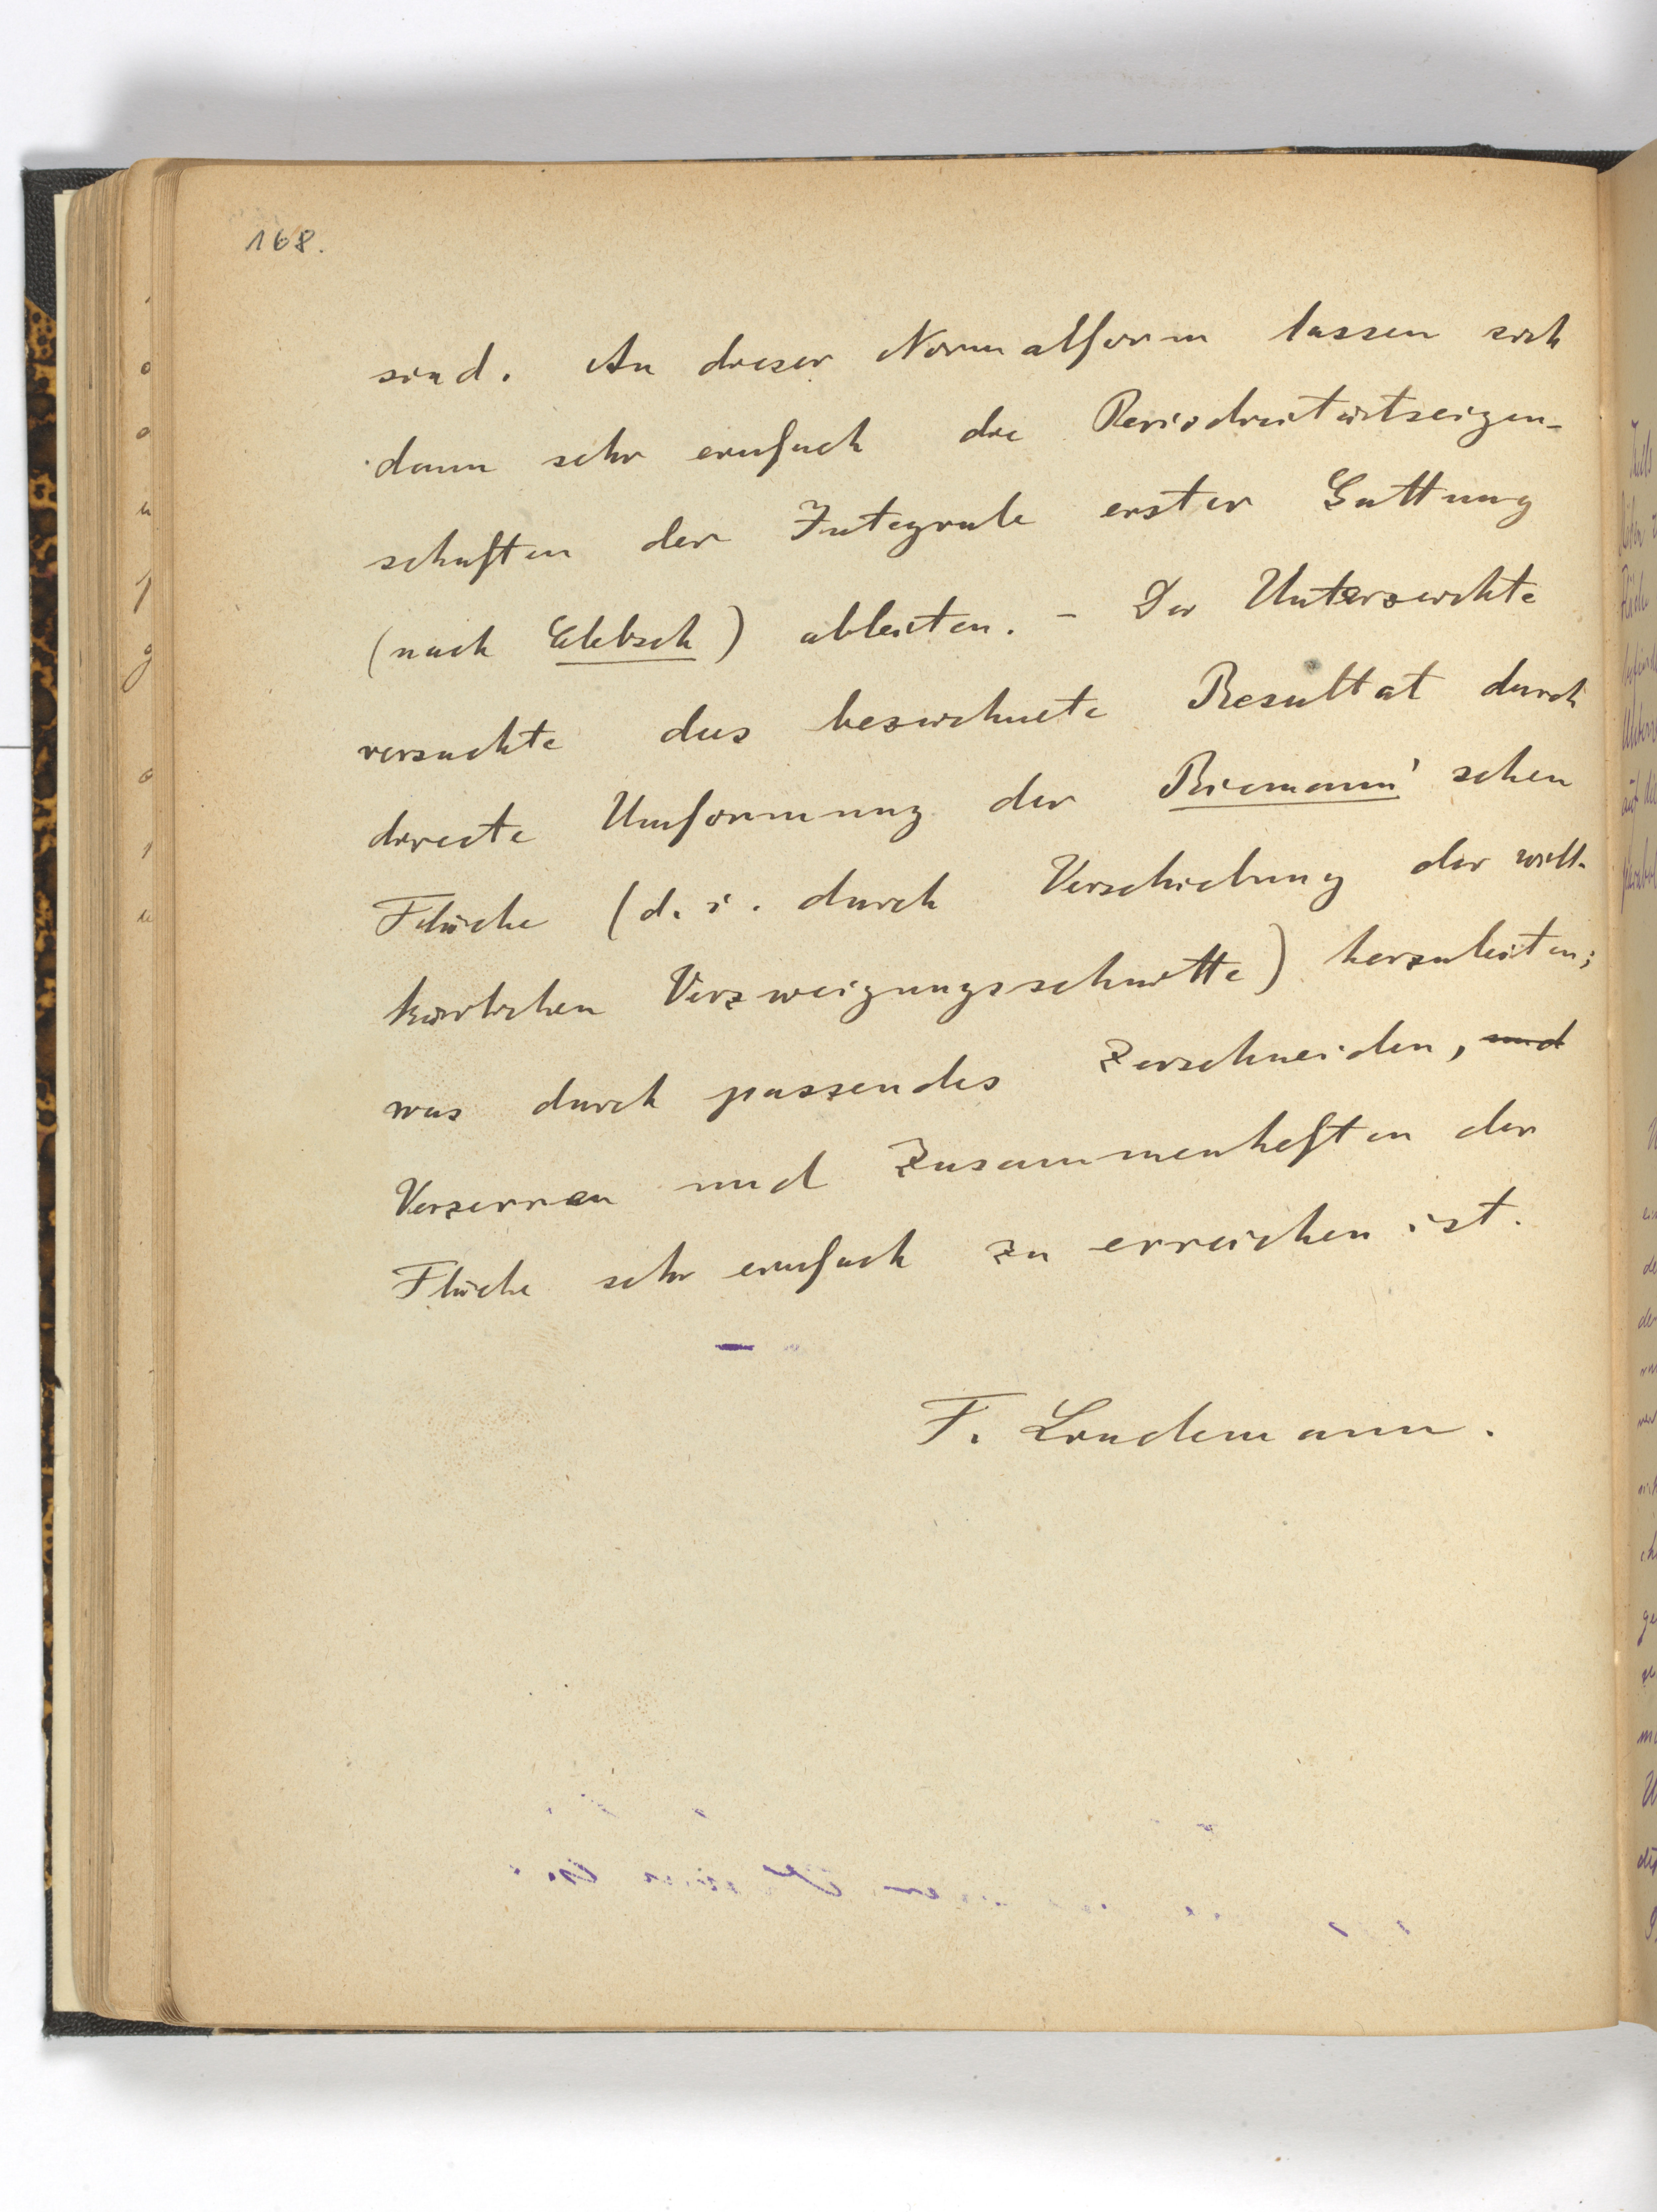 168.
sind. An dieser Normalform lassen sich
dann sehr einfach die Periodicitätseigen-
schaften der Integrale erster Gattung
(nach Clebsch) ableiten. – Der Unterzeichte
versuchte das bezeichnete Resultat durch
directe Umformung der Riemann'schen
Fläche (d. i. durch Verschiebung der will-
kürlichen Verzweigungsschnitte) herzuleiten;
was durch passendes Zerschneiden, und
Verzerren und Zusammenheften der
Fläche sehr einfach zu erreichen ist.
F. Lindemann.